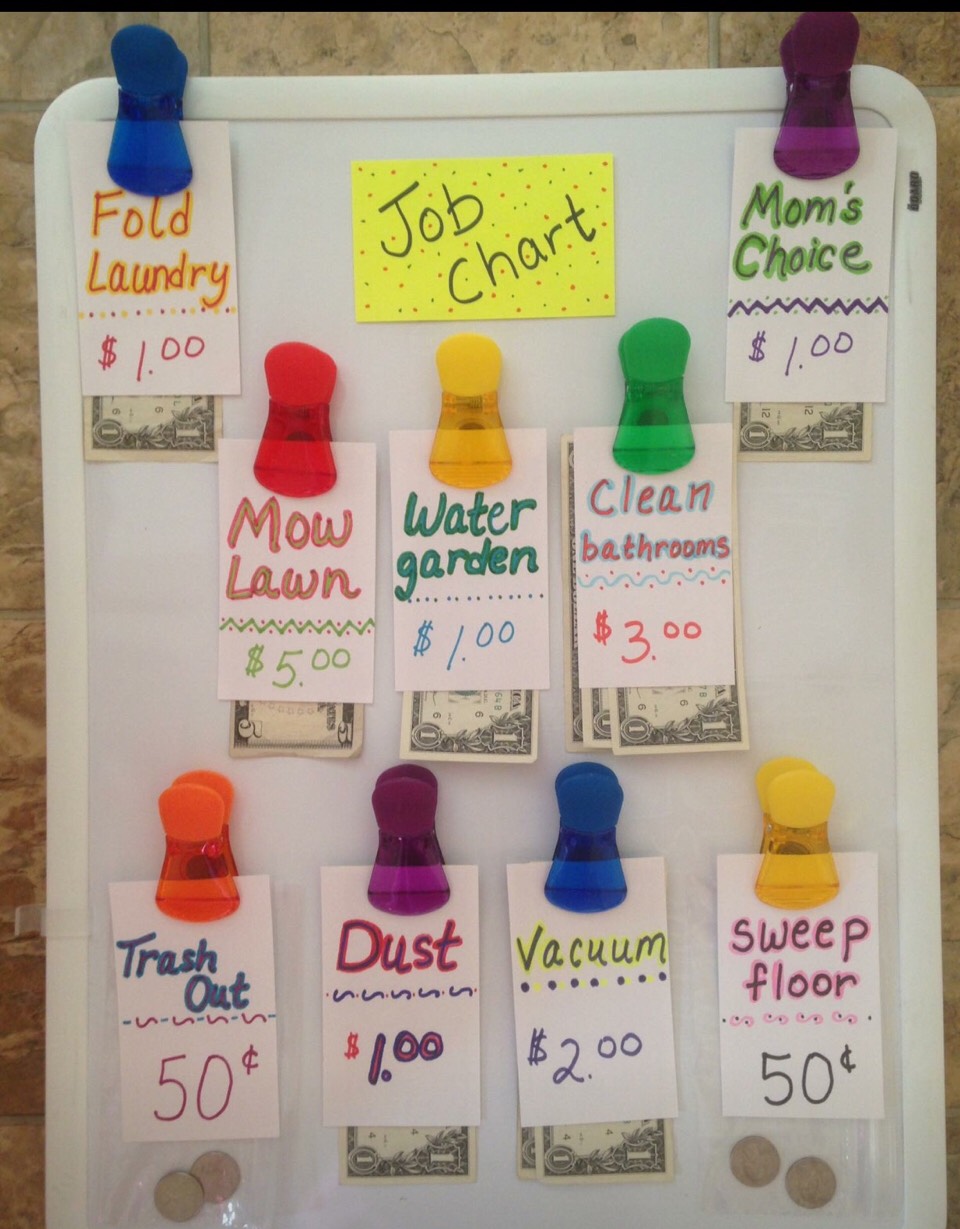 Job
Chart
Fold
Laundry
$1.00
Mom's
Choice
$1.00
BOARD
Mow
Lawn
$5.00
Water
garden
$1.00
Clean
bathrooms
$3.00
Trash
Out
50¢
Dust
$1.00
Vacuum
$2.00
sweep
floor
50¢